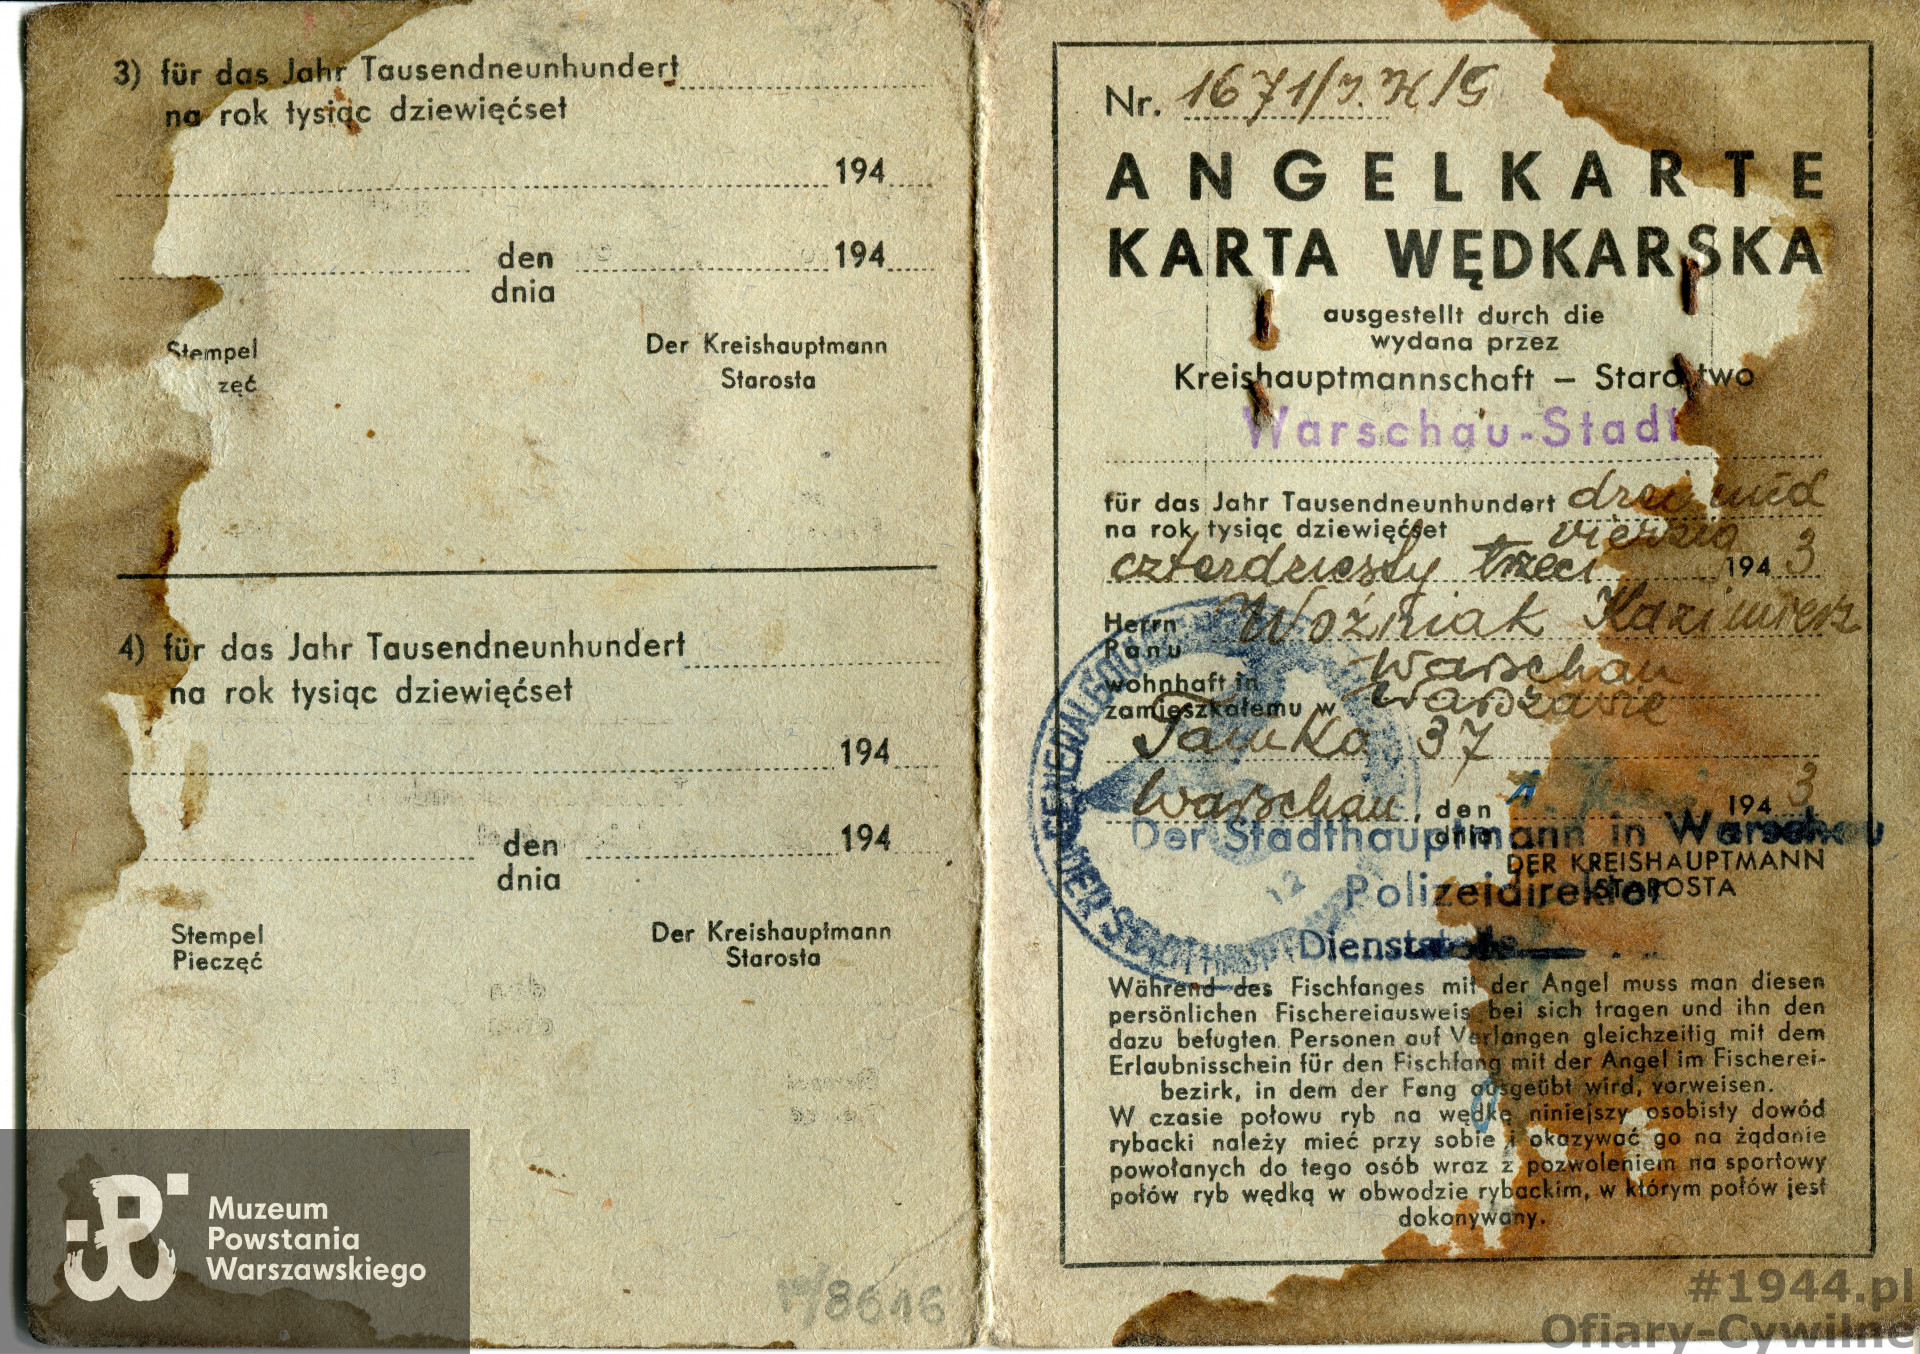 3) für das Jahr Tausendneunhundert
na rok tysiąc dziewięćset
194
den 194
dnia
Stempel Der Kreishauptmann
zęć Starosta
4) für das Jahr Tausendneunhundert
na rok tysiąc dziewięćset
194
den 194
dnia
Stempel Der Kreishauptmann
Pieczęć Starosta
8616
Muzeum
Powstania
Warszawskiego
Nr. 1671
ANGELKARTE
KARTA WĘDKARSKA
ausgestellt durch die
wydana przez
Kreishauptmannschaft – Starostwo
Warschau-Stadt
für das Jahr Tausendneunhundert drei und
na rok tysiąc dziewięćset vierzig
czterdziesty trzeci 1943
Herrn Woźniak Kazimierz
Panu
wohnhaft in Warschau
zamieszkałemu w
Tamka 37
Warschau, den 1943
dnia
Der Stadthauptmann in Warschau
DER KREISHAUPTMANN
STAROSTA
Polizeidirektor
Dienststelle
GENERALGOU
DER STADTHAUPT
12
Während des Fischfanges mit der Angel muss man diesen
persönlichen Fischereiausweis bei sich tragen und ihn den
dazu befugten Personen auf Verlangen gleichzeitig mit dem
Erlaubnisschein für den Fischfang mit der Angel im Fischerei-
bezirk, in dem der Fang ausgeübt wird, vorweisen.
W czasie połowu ryb na wędkę niniejszy osobisty dowód
rybacki należy mieć przy sobie i okazywać go na żądanie
powołanych do tego osób wraz z pozwoleniem na sportowy
połów ryb wędką w obwodzie rybackim, w którym połów jest
dokonywany.
#1944.pl
Ofiary-Cywilne